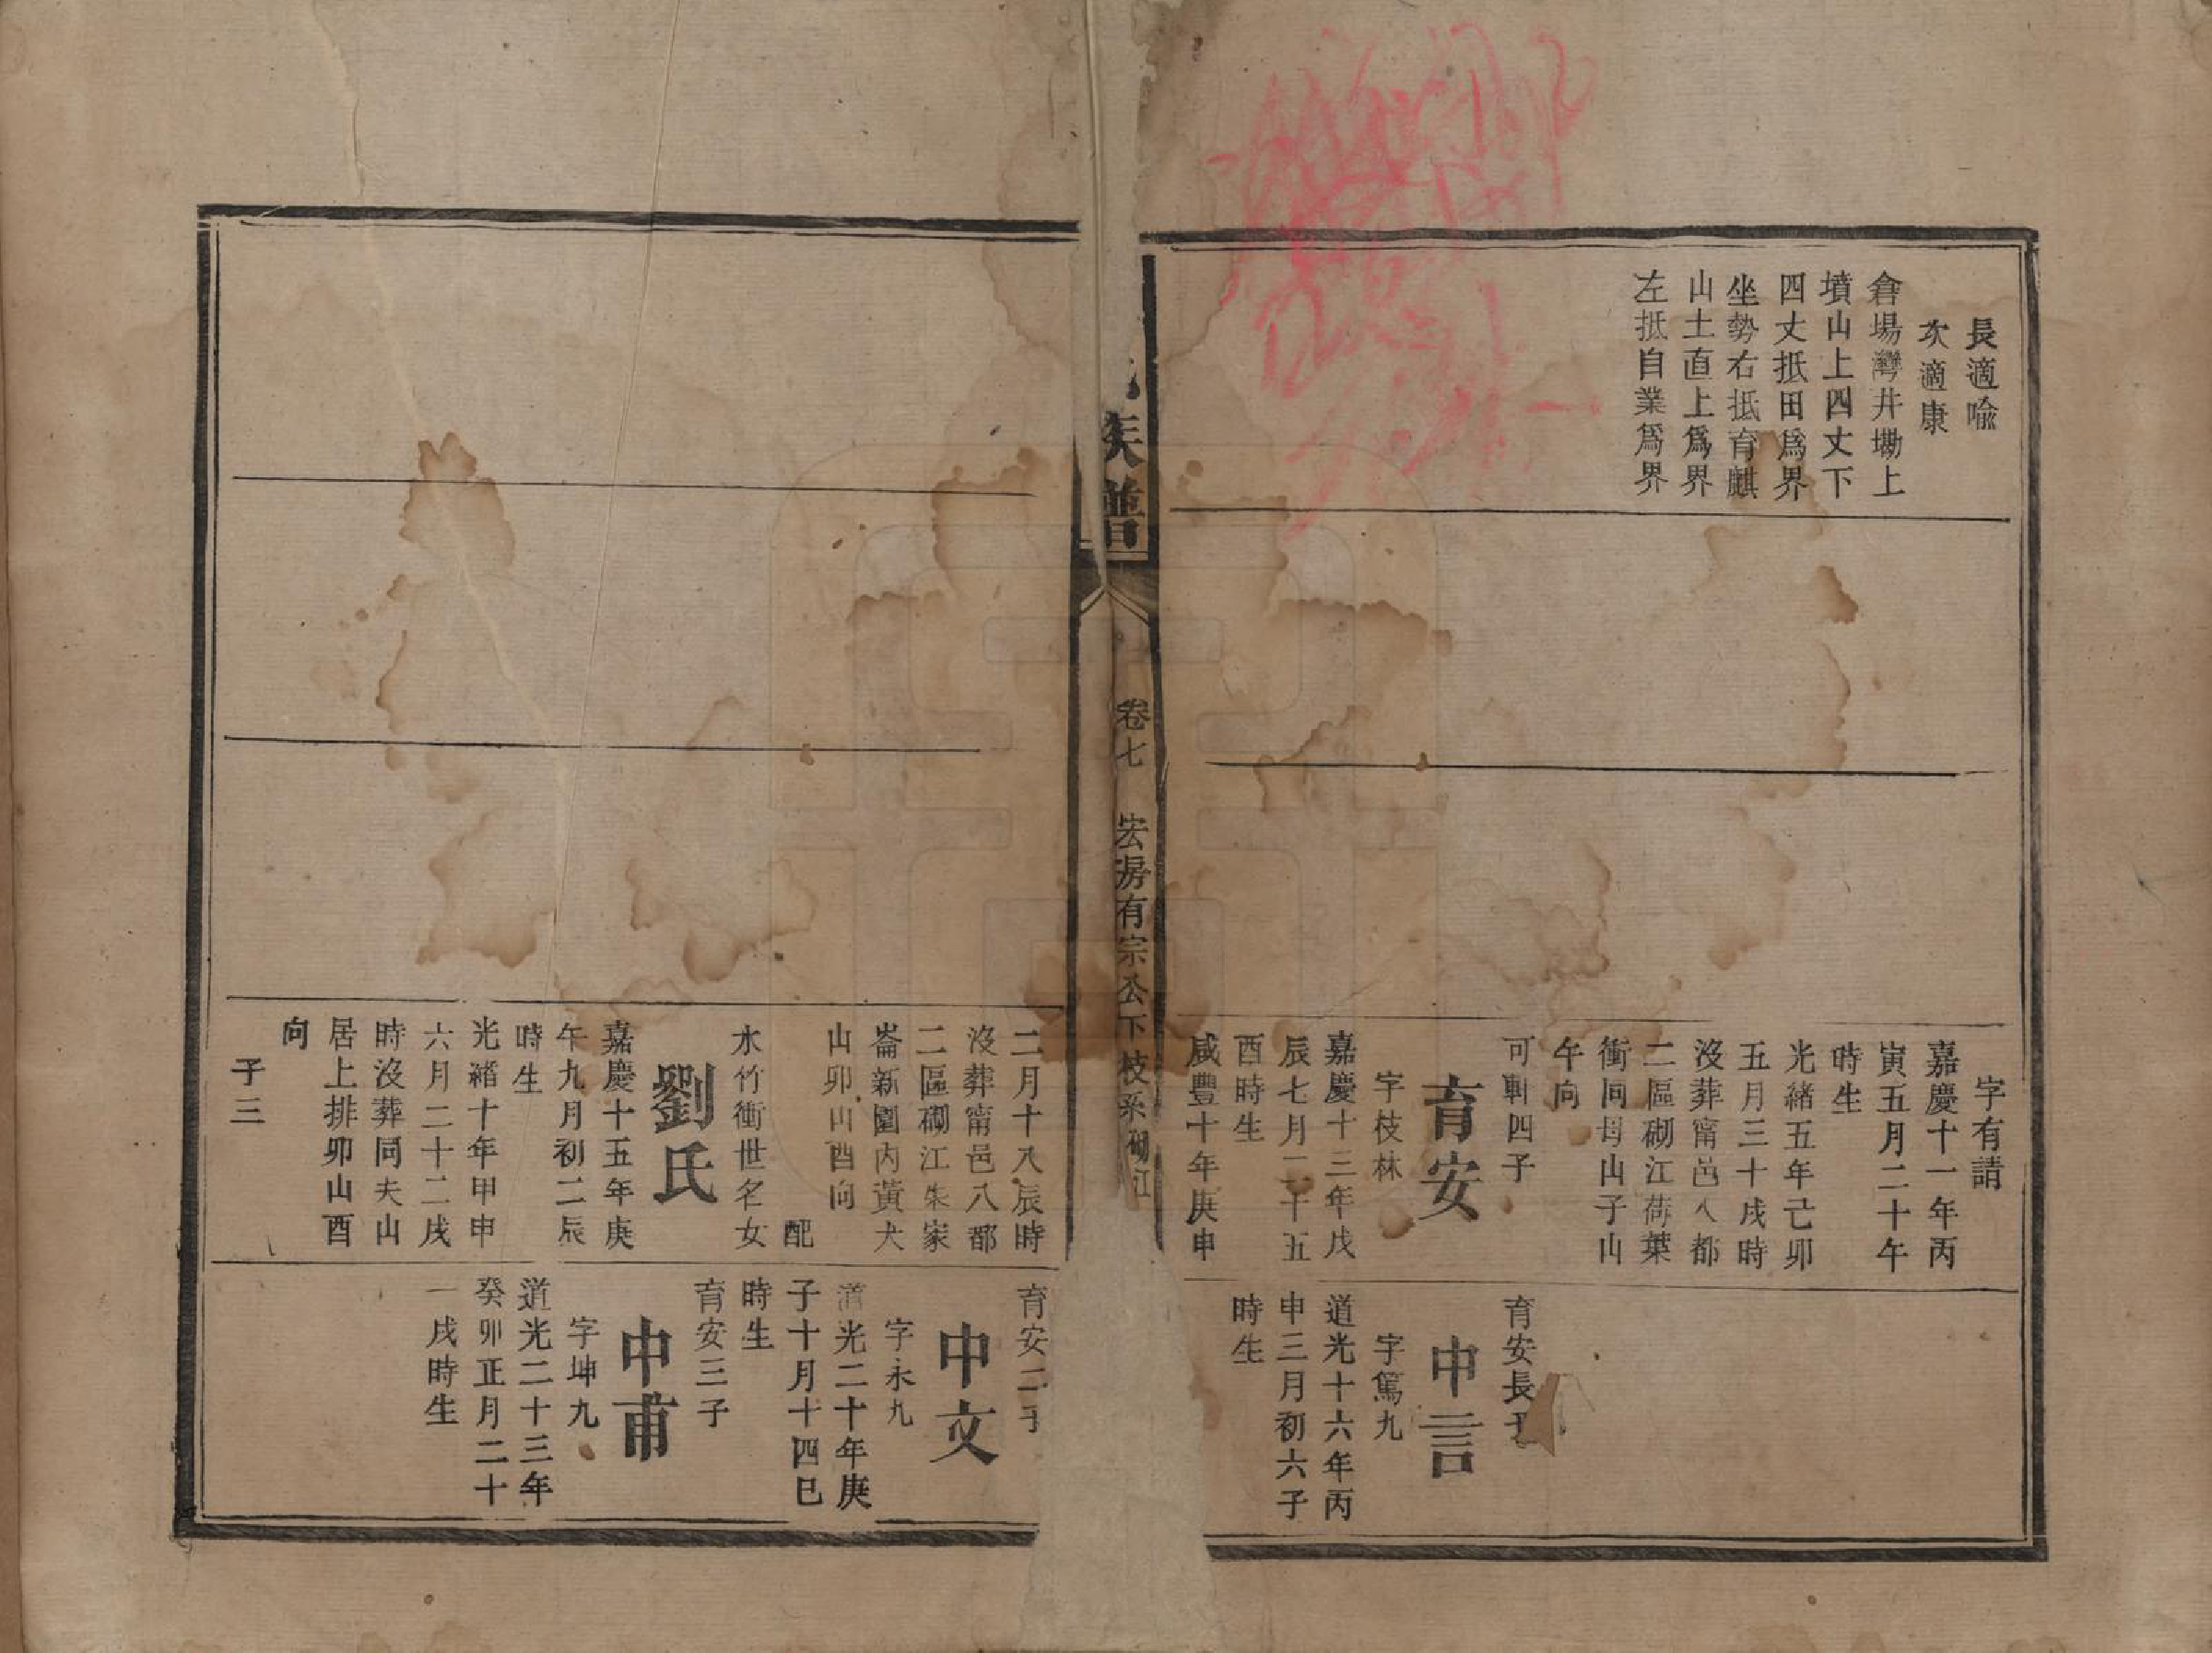 長適喩
次適康
倉場灣井墈上
墳山上四丈下
四丈抵田爲界
坐勢右抵育麒
山土直上爲界
左抵自業爲界
字有請
嘉慶十一年丙
寅五月二十午
時生
光緒五年己卯
五月三十戌時
沒葬甯邑八都
二區砌江荷葉
衝同母山子山
午向
可軒四子
育安
字枝林
嘉慶十三年戊
辰七月二十五
酉時生
咸豐十年庚申
育安長子
中言
字篤九
道光十六年丙
申三月初六子
時生
族譜
卷七
宏房有宗公下枝系砌江
二月十八辰時
沒葬甯邑八都
二區砌江朱家
崙新園內黃犬
山卯山酉向
配
水竹衝世名女
劉氏
嘉慶十五年庚
午九月初二辰
時生
光緒十年甲申
六月二十二戌
時沒葬同夫山
居上排卯山酉
向
子三
育安二子
中文
字永九
道光二十年庚
子十月十四巳
時生
育安三子
中甫
字坤九
道光二十三年
癸卯正月二十
一戌時生